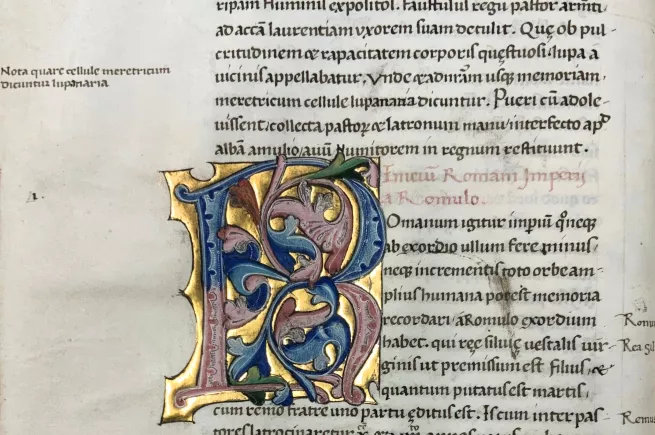 ripam Huminis expositos. Faustulus regu pastor armti
ad accā laurentiam vxorem suam detulit. Quę ob pul-
critudinem & rapacitatem corporis quęstuosi lupa a
vicinis appellabatur. Vnde & ad nr̄am usq memoriam,
meretricum cellule lupanaria dicuntur. Pueri cū adole-
uissent, collecta pastoȝ & latronum manu, interfecto apᵈ
albā amulio, auū Numitorem in regnum restituunt.
Nota quare cellule meretricum
dicuntur lupanaria
Iniciū Romani Imperij
a Romulo.
.1.
Romanum igitur imp̄iū qͦ neq
ab exordio ullum fere minus,
neq incrementis toto orbe am-
plius humana potest memoria
recordari, a Romulo exordium
habet. qui reę siluię vestalis uir-
ginis ut premissum est filius, &
quantum putatus est martis,
cum remo fratre uno partu ęditus est. Is cum inter pas-
tores latrocinaretur
Romu
Rea sil
Romu